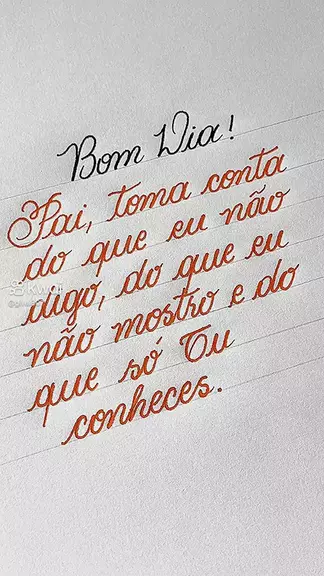 Bom Dia!
Pai, toma conta
do que eu não
digo, do que eu
não mostro e do
que só Tu
conheces.
Kwai